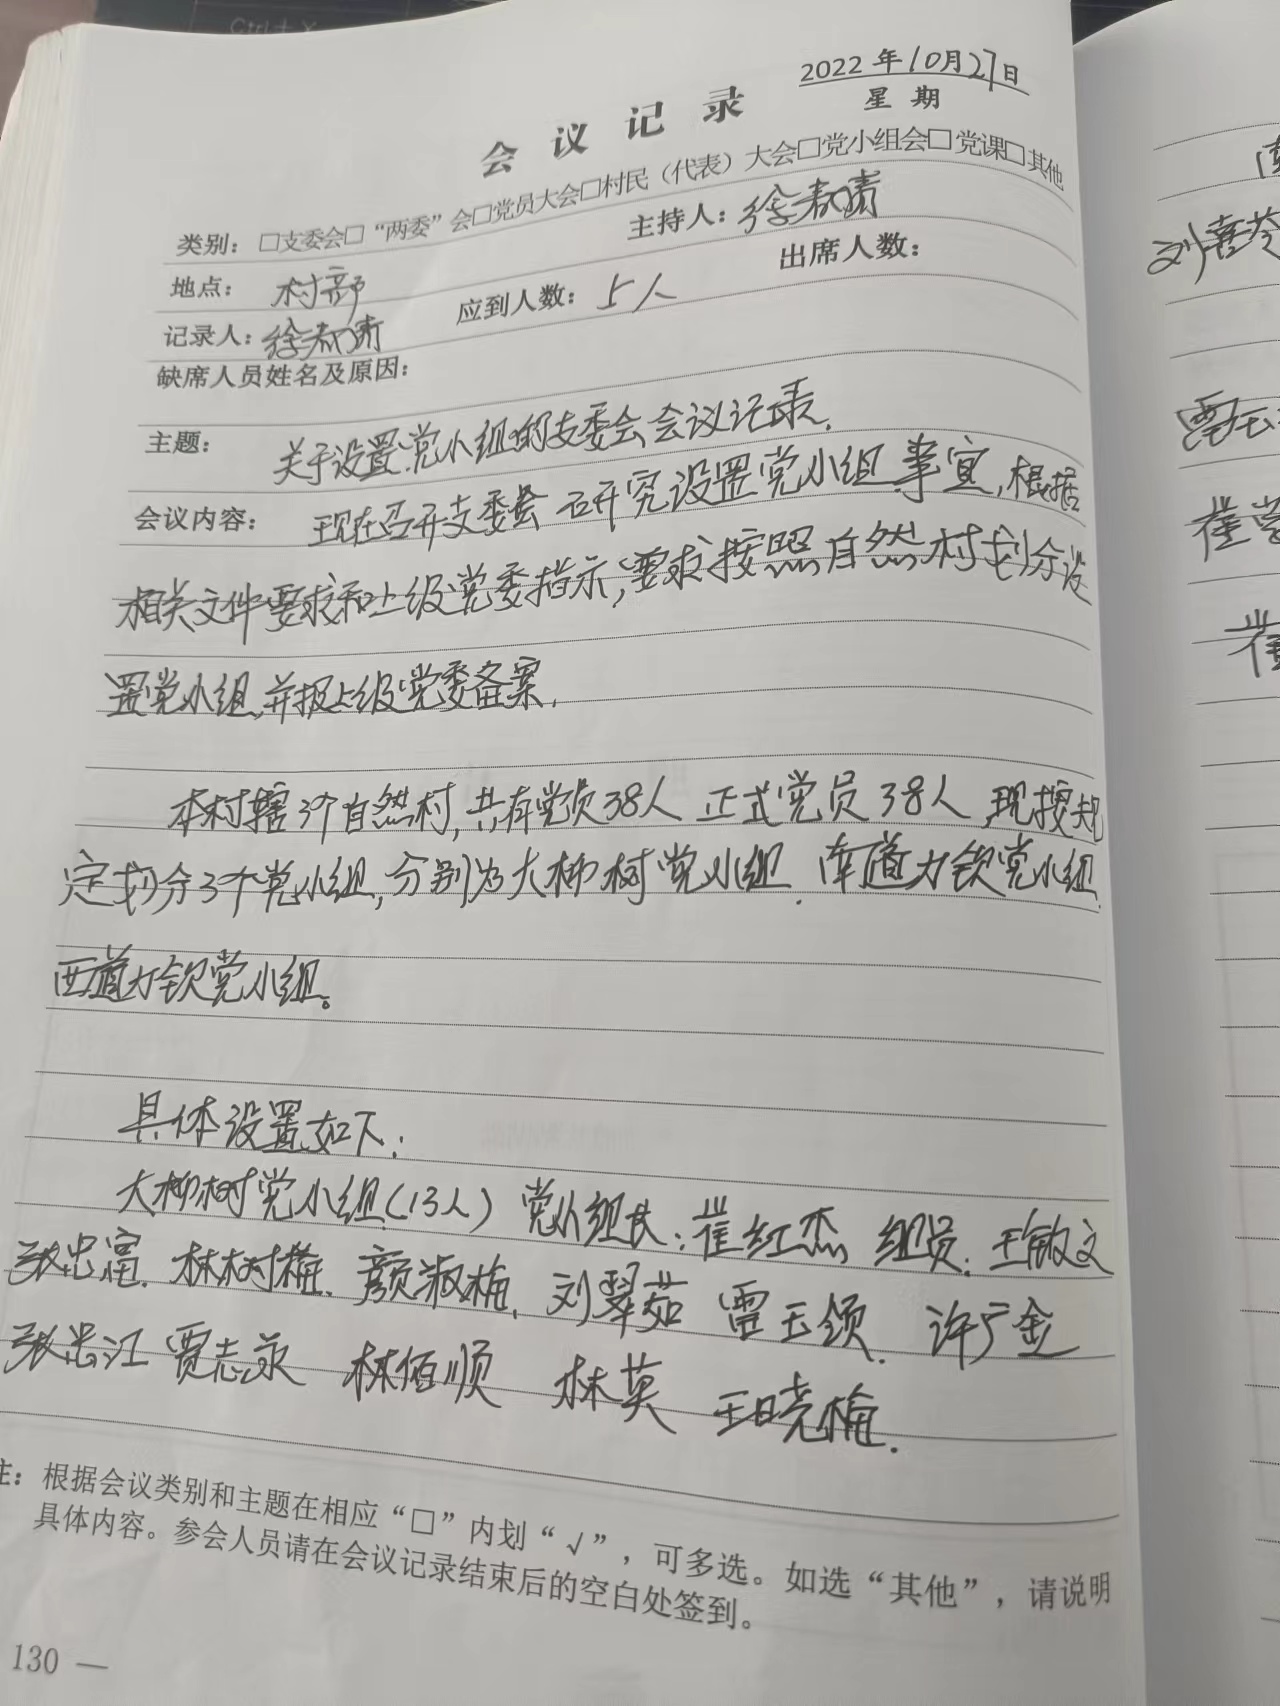 2022 年10月27日
星 期
会 议 记 录
类别：□支委会□“两委”会□党员大会□村民（代表）大会□党小组会□党课□其他
地点： 村部 主持人：徐春青
记录人：徐春青 应到人数：5人 出席人数：
缺席人员姓名及原因：
主题： 关于设置党小组的支委会会议记录.
会议内容： 现在召开支委会 研究设置党小组事宜,根据
相关文件要求和上级党委指示,要求按照自然村划分设
置党小组,并报上级党委备案.
本村辖3个自然村,共有党员38人 正式党员38人,现按规
定划分3个党小组,分别为大柳树党小组.南道力钦党小组.
西道力钦党小组。
具体设置如下:
大柳树党小组(13人) 党小组长:崔红杰 组员:王敏文
张忠富.林树梅.颜淑梅.刘翠茹 雷玉领.许广金
张忠江 贾志永 林佰顺 林英 王晓梅.
注：根据会议类别和主题在相应“□”内划“√”，可多选。如选“其他”，请说明
具体内容。参会人员请在会议记录结束后的空白处签到。
130 —
刘喜
雷玉
崔
崔